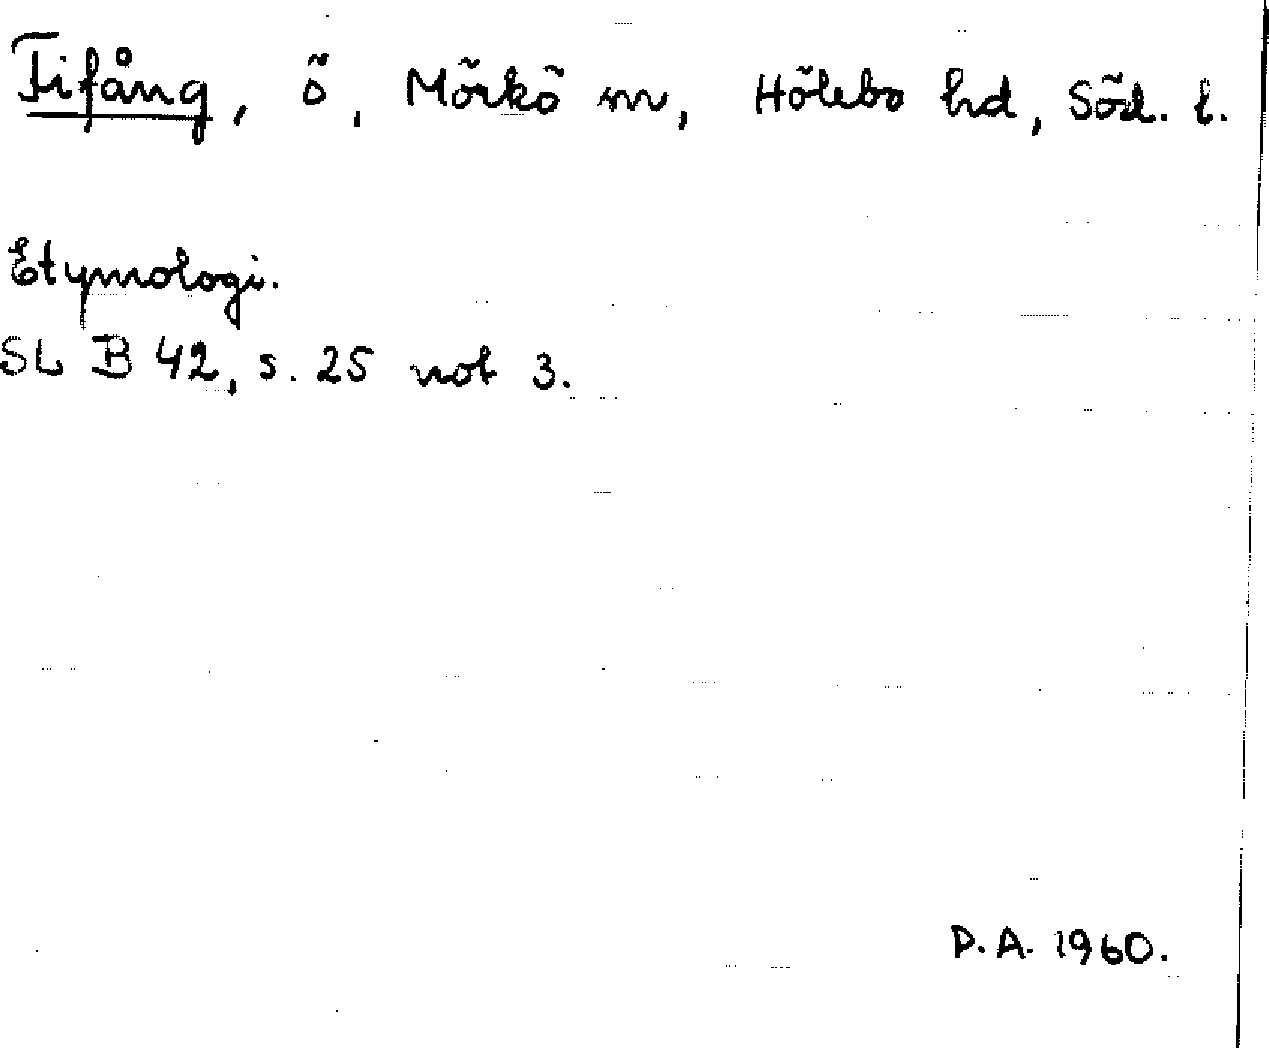 Fifång, ö, Mörkö sn, Hölebo hd, Söd. l.
Etymologi.
SL B 42, s. 25 not 3.
D.A. 1960.